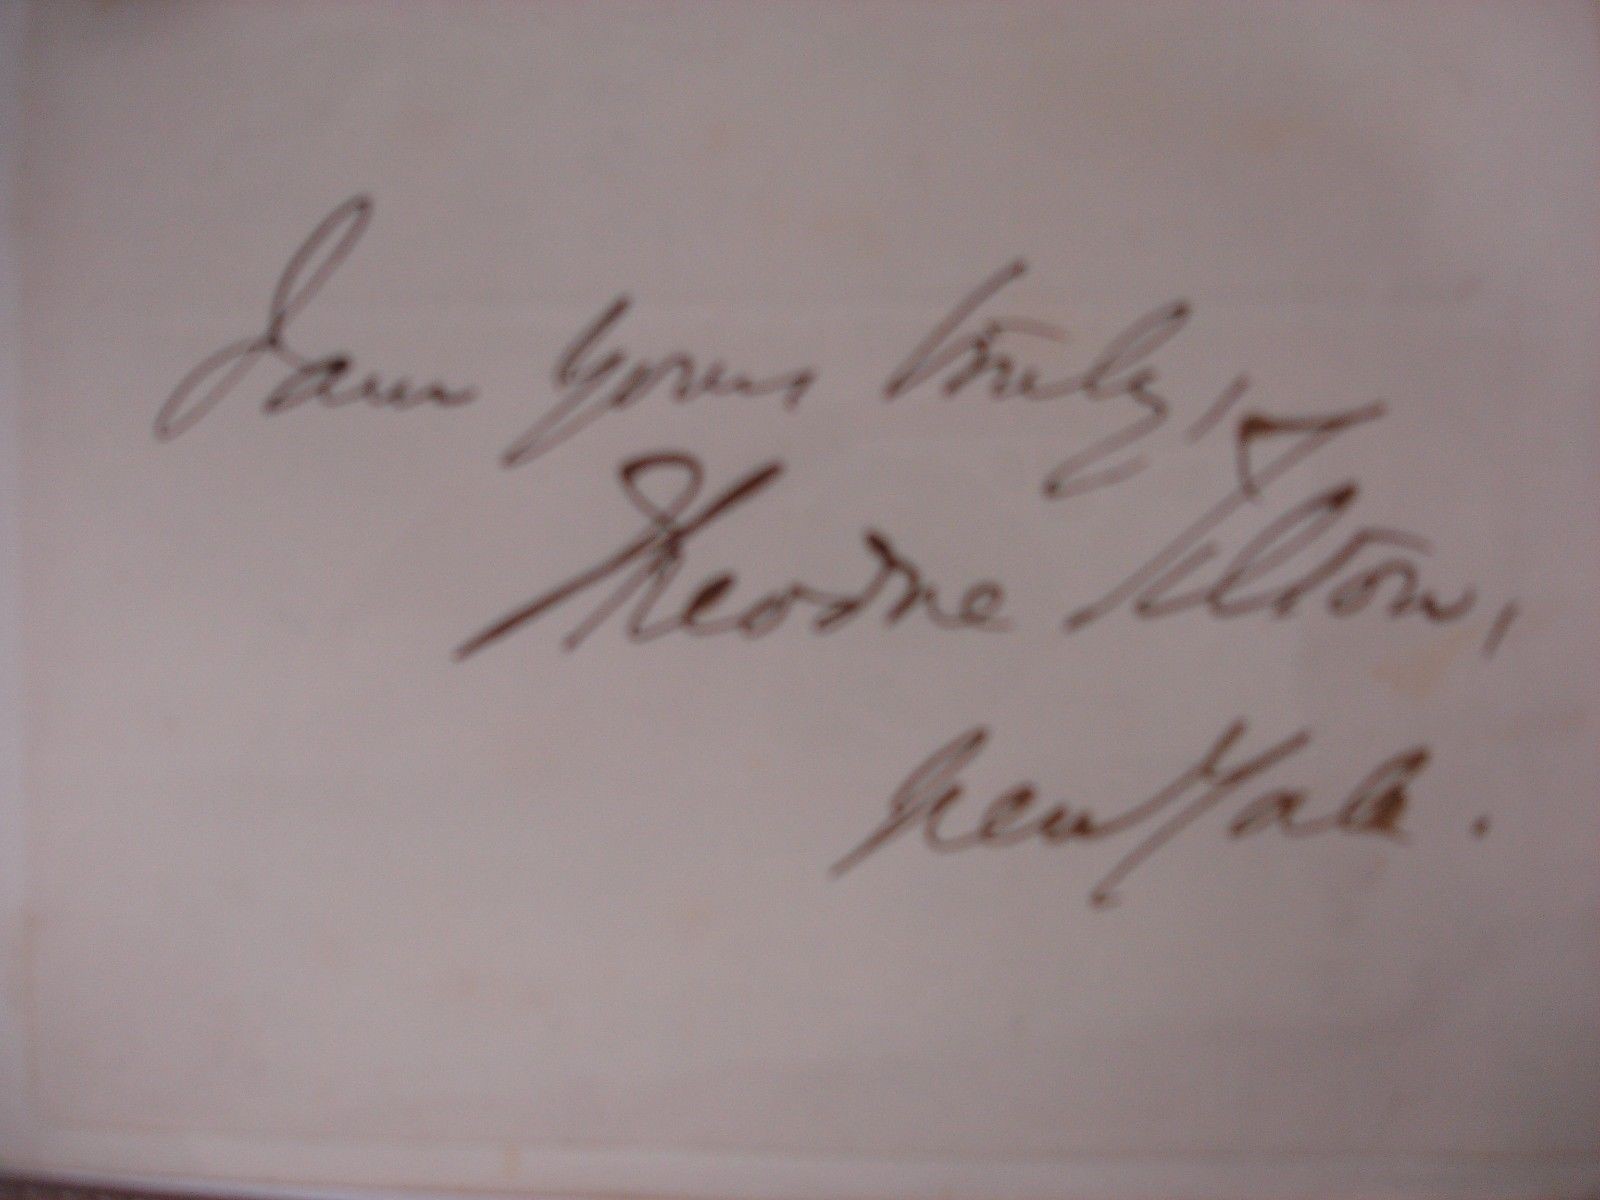 I am yours truly,
Theodore Tilton,
New York.